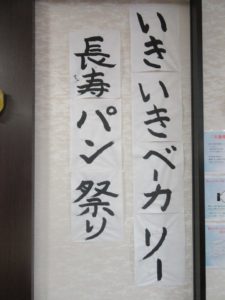 いきいきベーカリー
長寿パン祭り